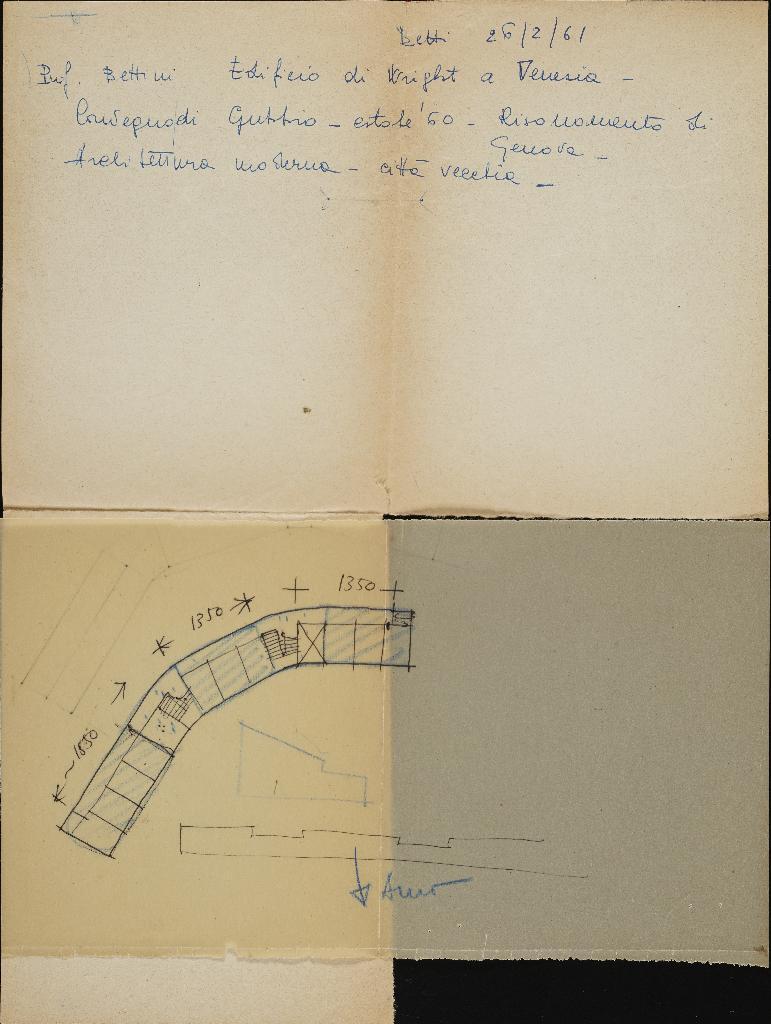 Betti 26/2/61
Prof. Bettini Edificio di Wright a Venezia -
Convegno di Gubbio - estate '60 - Risanamento di
Genova -
Architettura moderna - città vecchia -
1350
1350
1850
Arno